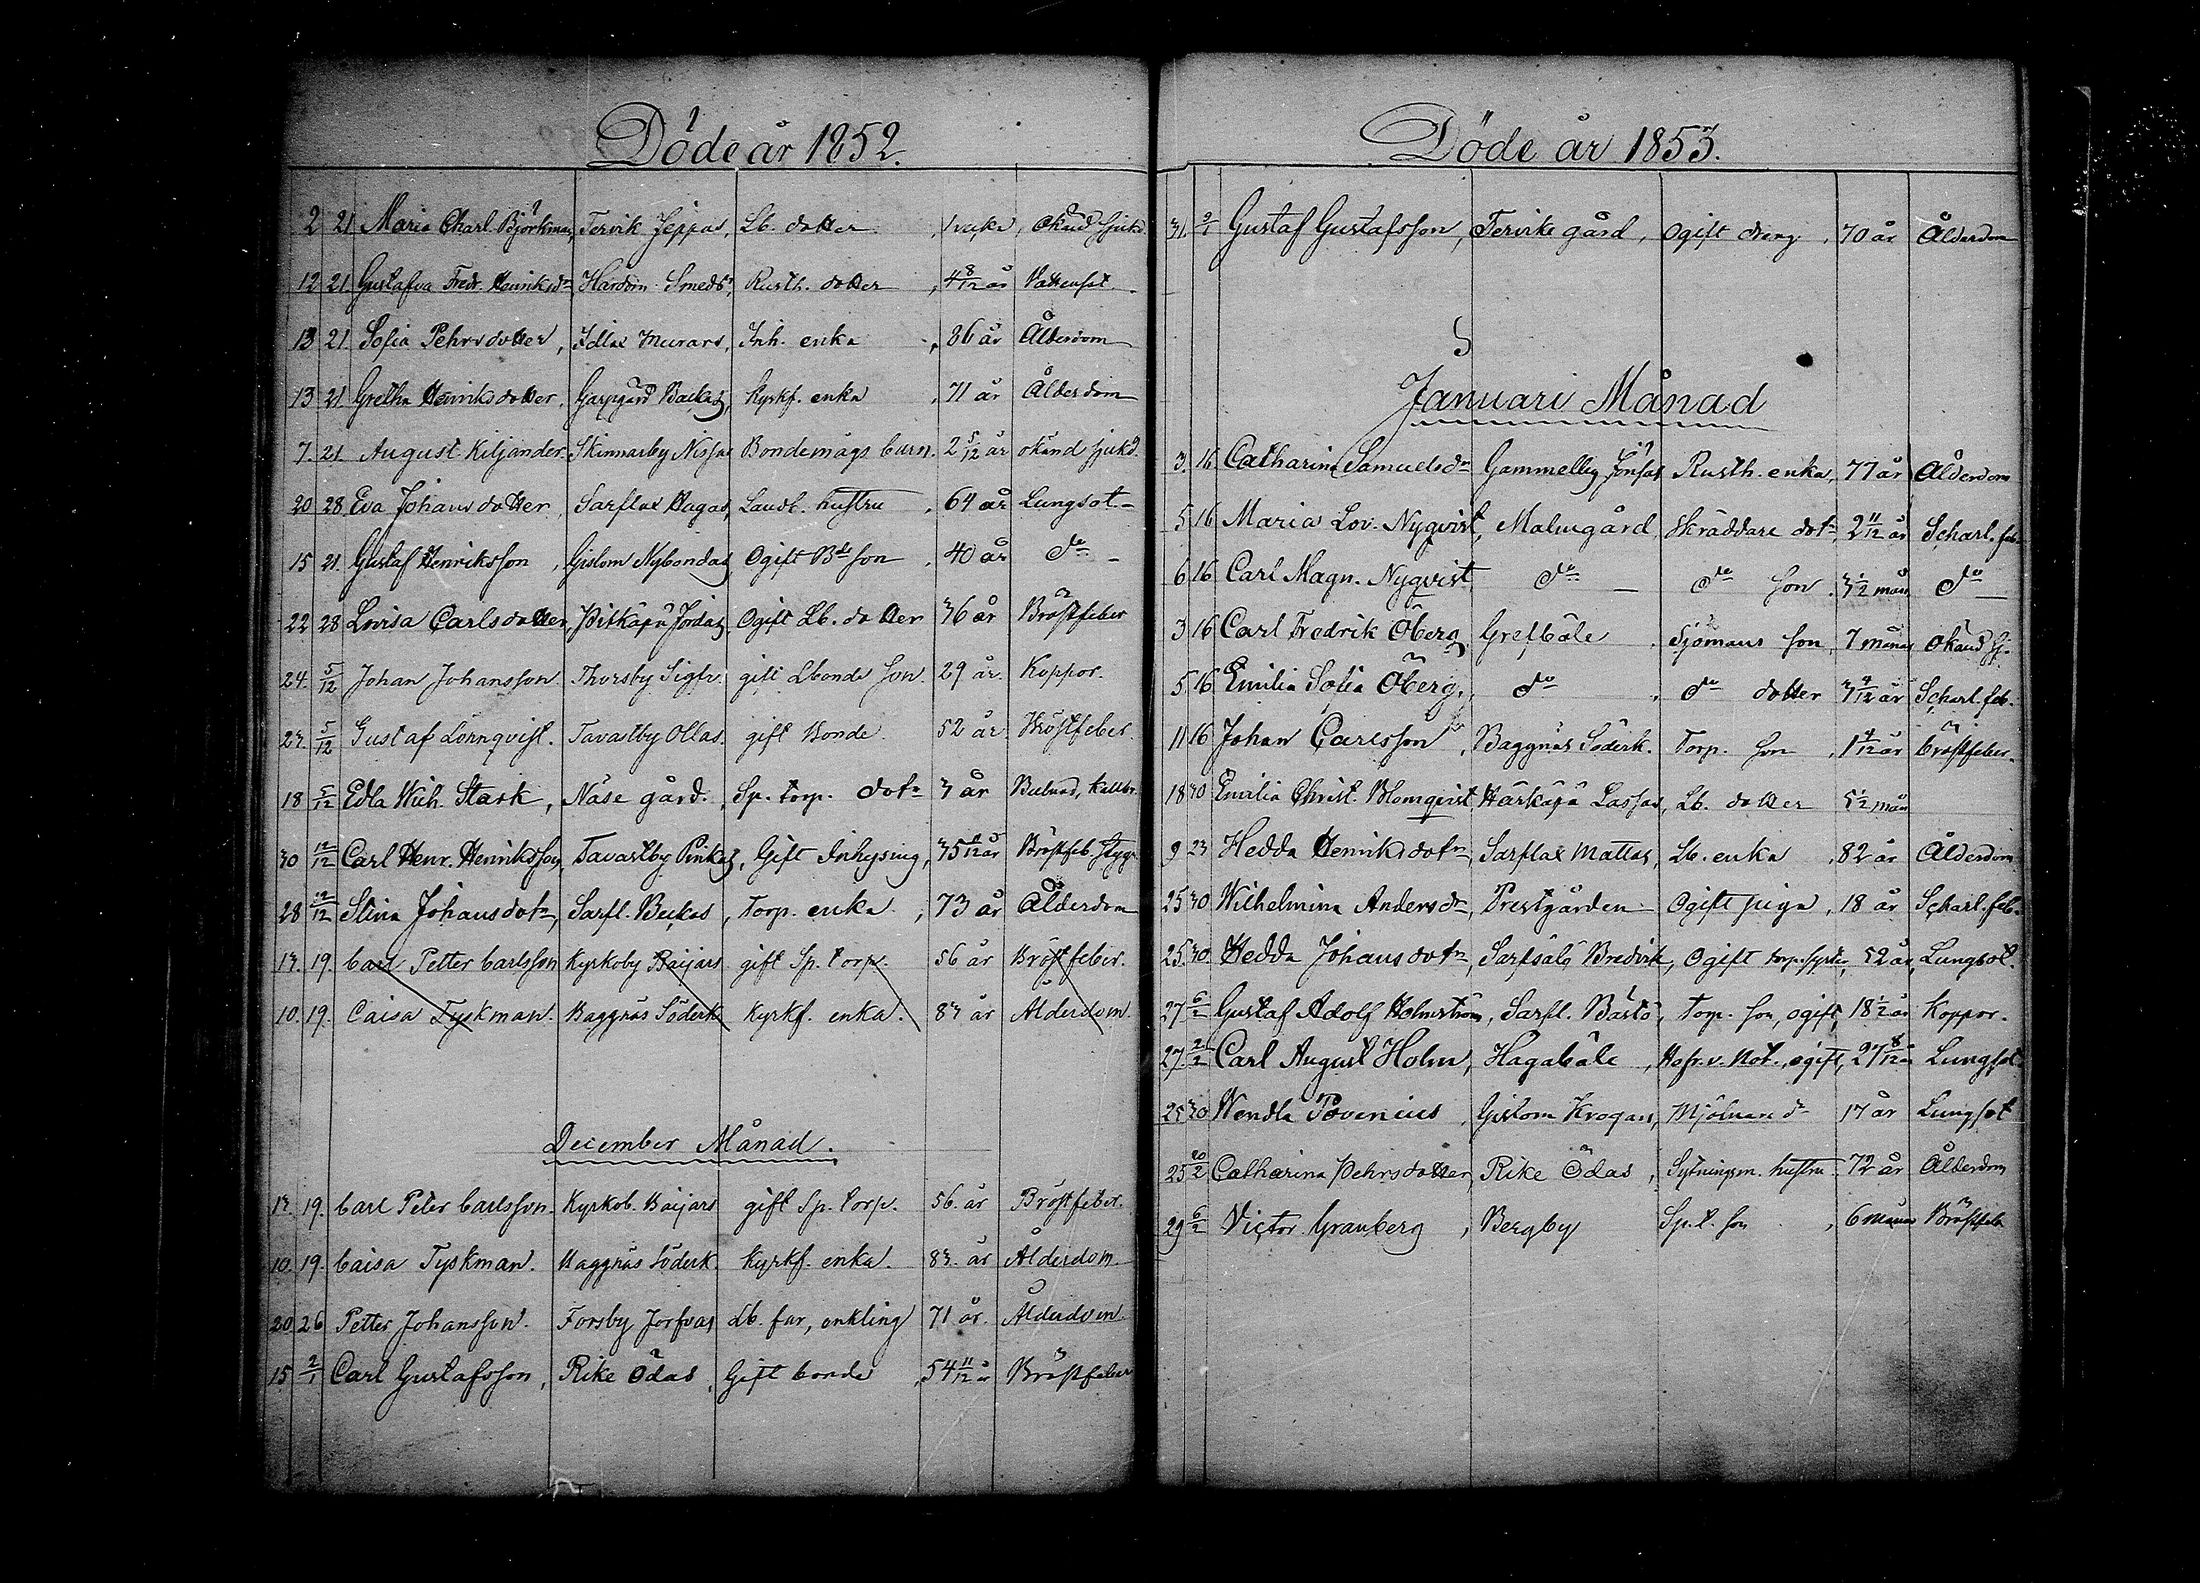 Döde år 1852.
2 21 Maria Charl. Björkman, Tervik Jeppas, Lb. dotter, 1 vecka, Okänd sjukd.
12 21 Gustafva Fredr. Henriksdr Hardom Smeds, Rusth. dotter, 4 8/12 år Vattusot
13 21. Sofia Pehrsdotter, Idlax Murars, Inh. enka, 86 år Ålderdom
13 21. Gretha Henriksdotter, Garpgård Backas, Kyrkf. enka, 71 år Ålderdom
7. 21. August Kiljander. Skinnarby Nissas Bondemågs barn. 2 5/12 år okänd sjukd.
20 28 Eva Johansdotter, Sarflax Hagas, Landb. hustru, 64 år Lungsot
15 21. Gustaf Henriksson, Gislom Nybondas, Ogift Bde son, 40 år do
22 28 Lovisa Carlsdotter, Pitkäpä Jordas, Ogift Lb. dotter 36 år Bröstfeber
24. 5/12 Johan Johansson Thorsby Sigfr. gift Lbonde son 29 år. Koppor.
27. 5/12 Gustaf Lönnqvist. Tavastby Ollas. gift Bonde. 52 år Bröstfeber.
18 5/12 Edla Wilh. Stark, Näse gård., Sp. torp. dotr 3 år Bulnad, kallbr.
30 12/12 Carl Henr. Henriksson, Tavastby Pinkas, Gift Inhysing, 35 /12 år Bröstfeb. stygn
28 12/12 Stina Johansdotr, Sarfl. Beckas, Torp. enka, 73 år Ålderdom
17. 19. Carl Petter Carlsson Kyrkoby Baijars gift Sp. torp. 56 år Bröstfeber.
10. 19. Caisa Tyskman. Baggnäs Söderk. Kyrkf. enka. 83 år Ålderdom.
December Månad.
17. 19. Carl Peter Carlsson. Kyrkob. Baijars gift Sp. torp. 56. år Bröstfeber.
10. 19. Caisa Tyskman. Baggnäs Söderk. Kyrkf. enka. 83. år Ålderdom.
20 26 Petter Johansson. Forsby Jorfvas Lb. far, enkling 71 år. Ålderdom.
15 2/1 Carl Gustafsson, Rike Ödas, Gift bonde, 54 11/12 år Bröstfeber
Döde år 1853.
31. 2/1 Gustaf Gustafsson, Tervike gård, Ogift dreng, 70 år Ålderdom
Januari Månad
3. 16 Catharina Samuelsdr Gammelby Jönsas Rusth. enka, 77 år Ålderdom
5 16 Maria Lov. Nyqvist, Malmgård, Skräddare dotr, 2 11/12 år Scharl. feb.
6 16 Carl Magn. Nyqvist do do son. 3 1/2 mån. do
3 16 Carl Fredrik Öberg, Grefbäle, Sjömans son, 7 månad Okänd sj.
5 16 Emilia Sofia Öberg, do, do dotter 3 4/12 år Scharl. feb.
11 16 Johan Carlsson, Baggnäs Söderk. Torp. son, 1 4/12 år Bröstfeber.
18 30 Emilia Christ. Blomqvist Härkäpä Lassas, Lb. dotter 5 1/2 mån
9 23 Hedda Henriksdotr, Sarflax Mattas, Lb. enka, 82 år Ålderdom
25 30 Wilhelmina Andersdr, Prestgården Ogift piga, 18 år Scharl. feb.
25. 30. Hedda Johansdotr, Sarfsalö Bredvik, Ogift 52 år, Lungsot.
27 6/2 Gustaf Adolf Holmström, Sarfl. Bastö, Torp. son, ogift, 18 1/2 år Koppor.
27. 2/2 Carl August Holm, Hagaböle, Hofr. v. Not., ogift, 27 8/12 år Lungsot.
25 30 Wendla Tovenius, Gislom Krogars, Mjölnare dr 17 år Lungsot
25 20/2 Catharina Pehrsdotter, Rike Ödas, Sytningsm. hustru. 72 år Ålderdom
29 6/2 Victor Granberg, Bergby Sp.t. son, 6 månad Bröstfeb